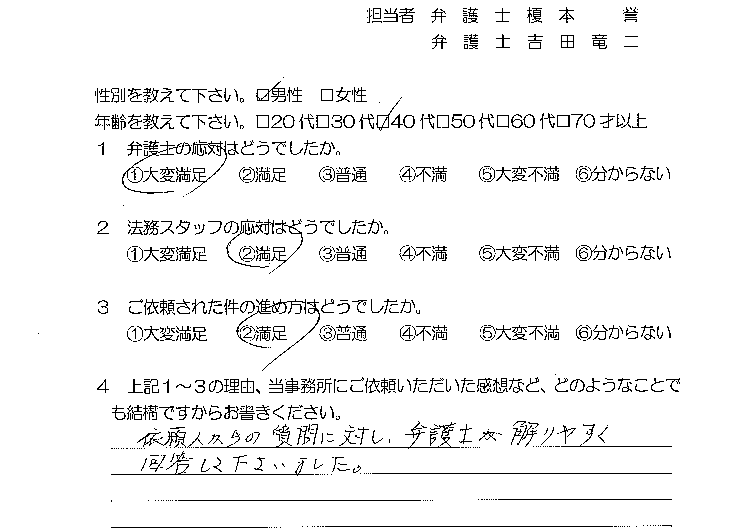 担当者 弁護士榎本 誉
弁護士吉田竜二
性別を教えて下さい。☑男性 □女性
年齢を教えて下さい。□20代□30代☑40代□50代□60代□70才以上
1 弁護士の応対はどうでしたか。
①大変満足 ②満足 ③普通 ④不満 ⑤大変不満 ⑥分からない
2 法務スタッフの応対はどうでしたか。
①大変満足 ②満足 ③普通 ④不満 ⑤大変不満 ⑥分からない
3 ご依頼された件の進め方はどうでしたか。
①大変満足 ②満足 ③普通 ④不満 ⑤大変不満 ⑥分からない
4 上記1～3の理由、当事務所にご依頼いただいた感想など、どのようなことで
も結構ですからお書きください。
依頼人からの質問に対し、弁護士が解りやすく
回答して下さいました。